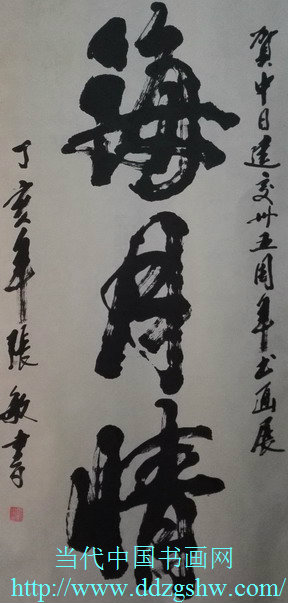 贺中日建交卅五周年书画展
海月晴
丁亥年張敏書
当代中国书画网
http://www.ddzgshw.com/